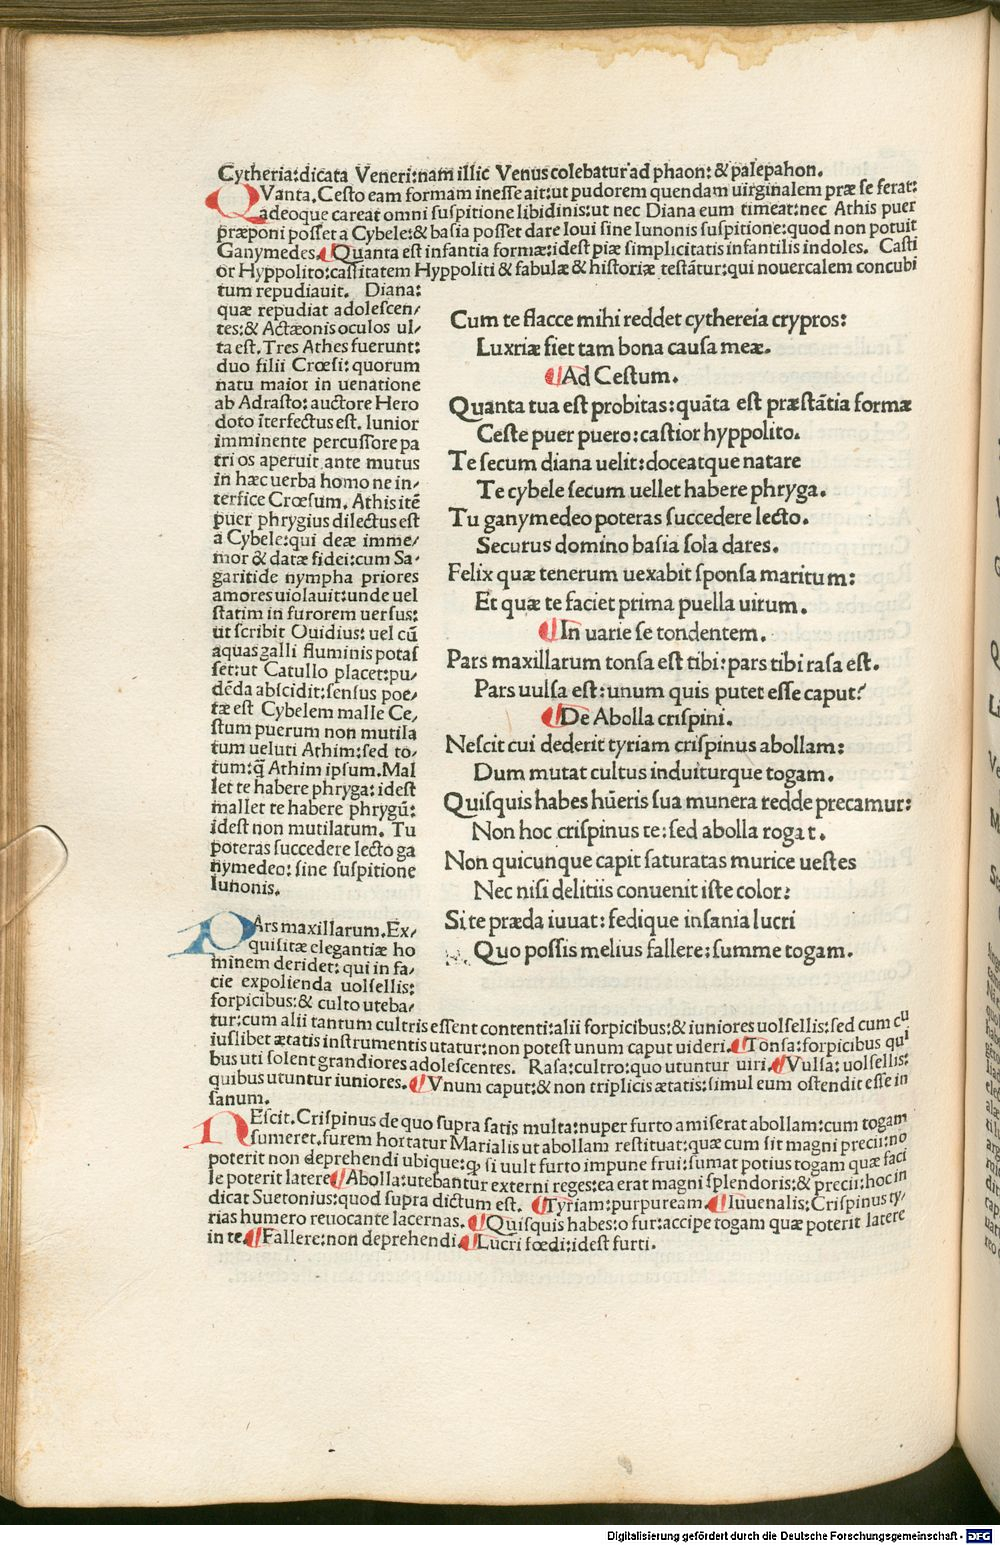 Cytheria:dicata Veneri:nam illic Venus colebatur ad phaon: & palepahon.
QVanta.Cesto eam formam inesse ait:ut pudorem quendam uirginalem præ se ferat:
adeoque careat omni suspitione libidinis:ut nec Diana eum timeat:nec Athis puer
præponi posset a Cybele:& basia posset dare Ioui sine Iunonis suspitione:quod non potuit
Ganymedes.¶Quanta est infantia formæ:idest piæ simplicitatis infantilis indoles. Casti
or Hyppolito:castitatem Hyppoliti & fabulæ & historiæ testātur:qui nouercalem concubi
tum repudiauit. Diana:
quæ repudiat adolescen/
tes:& Actæonis oculos ul/
ta est.Tres Athes fuerunt:
duo filii Crœsi: quorum
natu maior in uenatione
ab Adrasto: auctore Hero
doto īterfectus est. Iunior
imminente percussore pa
tri os aperuit ante mutus
in hæc uerba homo ne in/
terfice Crœsum. Athis itē
puer phrygius dilectus est
a Cybele:qui deæ imme/
mor & datæ fidei:cum Sa/
garitide nympha priores
amores uiolauit:unde uel
statim in furorem uersus:
ut scribit Ouidius: uel cū
aquas galli fluminis potas
set:ut Catullo placet:pu/
dēda abscidit:sensus poe/
tæ est Cybelem malle Ce/
stum puerum non mutila
tum ueluti Athim:sed to/
tum:q̄ Athim ipsum.Mal
let te habere phryga: idest
mallet te habere phrygū:
idest non mutilatum. Tu
poteras succedere lecto ga
nymedeo: sine suspitione
Iunonis.
Cum te flacce mihi reddet cythereia crypros:
Luxriæ fiet tam bona causa meæ.
¶Ad Cestum.
Quanta tua est probitas:quāta est præstātia formæ
Ceste puer puero:castior hyppolito.
Te secum diana uelit:doceatque natare
Te cybele secum uellet habere phryga.
Tu ganymedeo poteras succedere lecto.
Securus domino basia sola dares.
Felix quæ tenerum uexabit sponsa maritum:
Et quæ te faciet prima puella uirum.
¶In uarie se tondentem.
Pars maxillarum tonsa est tibi:pars tibi rasa est.
Pars uulsa est:unum quis putet esse caput?
¶De Abolla crispini.
Nescit cui dederit tyriam crispinus abollam:
Dum mutat cultus induiturque togam.
Quisquis habes hūeris sua munera redde precamur:
Non hoc crispinus te:sed abolla rogat.
Non quicunque capit saturatas murice uestes
Nec nisi delitiis conuenit iste color:
Si te præda iuuat: fedique insania lucri
Quo possis melius fallere:summe togam.
PArs maxillarum.Ex/
quisitæ elegantiæ ho
minem deridet: qui in fa/
cie expolienda uolsellis:
forpicibus:& culto uteba/
tur:cum alii tantum cultris essent contenti:alii forpicibus:& iuniores uolsellis:sed cum cu
iuslibet ætatis instrumentis utatur:non potest unum caput uideri.¶Tonsa:forpicibus qui
bus uti solent grandiores adolescentes. Rasa:cultro:quo utuntur uiri.¶Vulsa:uolsellis:
quibus utuntur iuniores.¶Vnum caput:& non triplicis ætatis:simul eum ostendit esse in
sanum.
NEscit.Crispinus de quo supra satis multa:nuper furto amiserat abollam:cum togam
sumeret.furem hortatur Marialis ut abollam restituat:quæ cum sit magni precii:no
poterit non deprehendi ubique:ꝙ si uult furto impune frui:sumat potius togam quæ faci
le poterit latere¶Abolla:utebantur externi reges:ea erat magni splendoris:& precii:hoc in
dicat Suetonius:quod supra dictum est. ¶Tyriam:purpuream.¶Iuuenalis:Crispinus ty/
rias humero reuocante lacernas.¶Quisquis habes:o fur:accipe togam quæ poterit latere
in te.¶Fallere:non deprehendi.¶Lucri fœdi:idest furti.
Digitalisierung gefördert durch die Deutsche Forschungsgemeinschaft - DFG